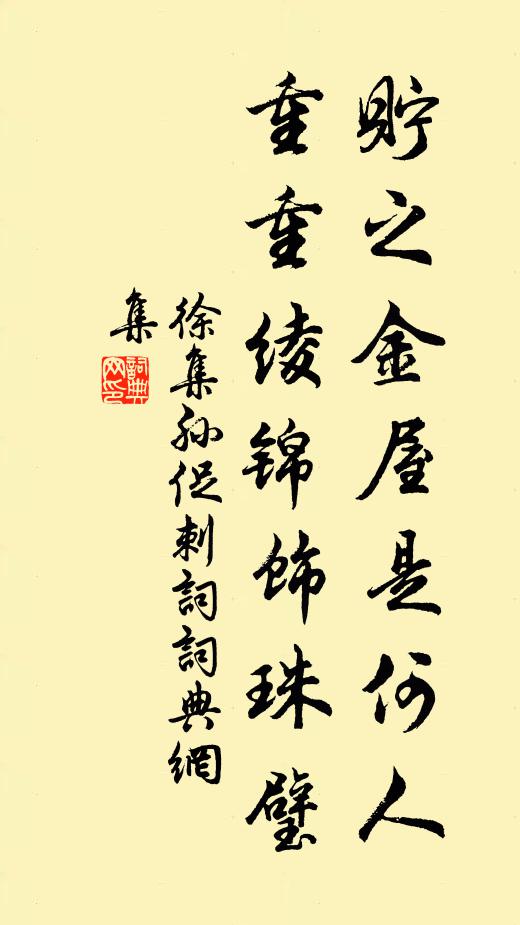 貯之金屋是何人
重重綾錦飾珠璧
徐集孙促刺詞詞典網
集
詞典
网印